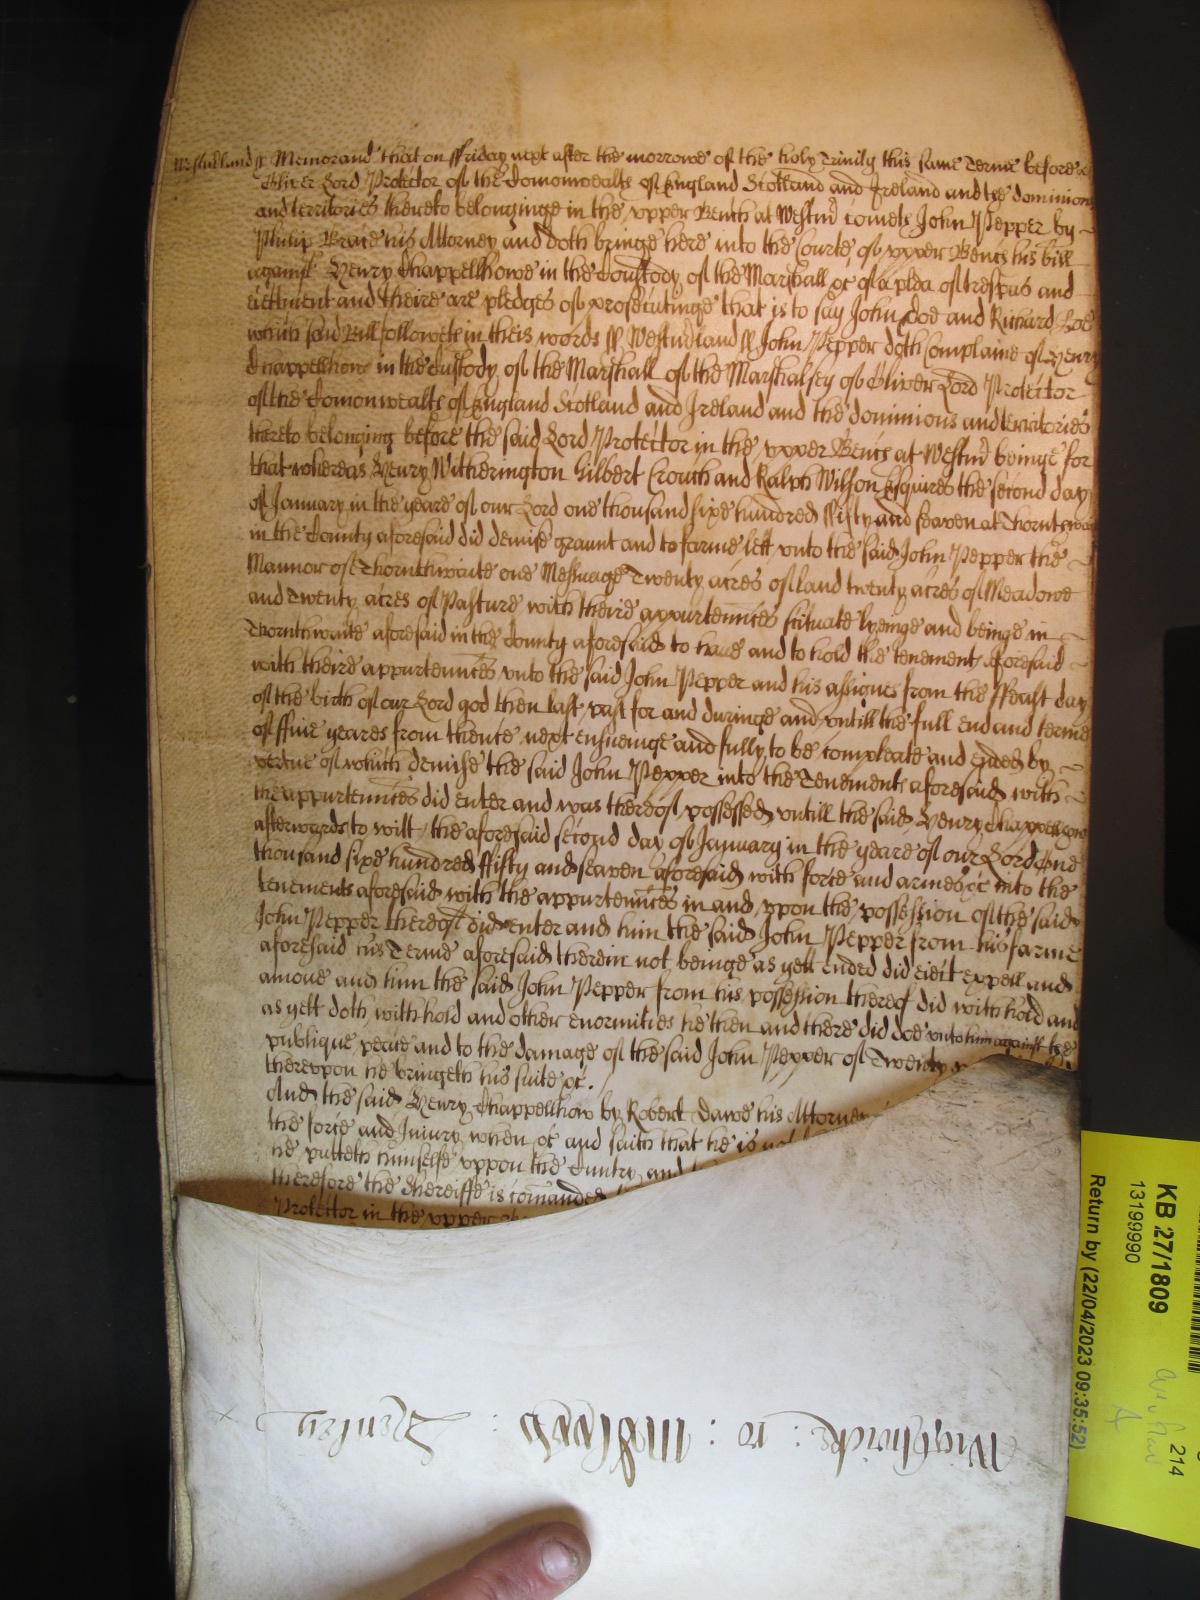 Westmerland ss Memorand that on ffriday next after the morrowe of the holy Trinity this same Terme before
Oliver Lord Protector of the Comonwealth of England Scotland and Ireland and the dominions
and territories thereto belonginge in the upper Bench at Westm cometh John Pepper by
Philip Brace his Attorney and doth bringe here into the Courte of upper Bench his bill
against Henry Chappellhowe in the Custody of the Marshall &c of a plea of trespas and
eiectment and theire are pledges of prosecutinge that is to say John Doe and Richard Roe
which said Bill followeth in theis words ss Westmland ss John Pepper doth Complaine of Henry
Chappellhow in the Custody of the Marshall of the Marshalsey of Oliver Lord Protector
of the Comonwealth of England Scotland and Ireland and the dominions and territories
thereto belonging before the said Lord Protector in the upper Bench at Westm beinge for
that whereas Henry Witherington Gilbert Crouch and Ralph Wilson Esquires the second day
of January in the yeare of our Lord one thousand sixe hundred ffifty and seaven at Thornthwaite
in the County aforesaid did demise graunt and to farme lett unto the said John Pepper the
Mannor of Thornthwaite one Messuage Twenty acres of land twenty acres of Meadowe
and Twenty acres of Pasture with theire appurtennces scituate lyeinge and beinge in
Thornthwaite aforesaid in the County aforesaid to have and to hold the tenements aforesaid
with theire appurtennces unto the said John Pepper and his assignes from the ffeast day
of the birth of our Lord god then last past for and duringe and untill the full end and terme
of ffive yeares from thence next ensueinge and fully to be compleate and ended by
vertue of which demise the said John Pepper into the Tenements aforesaid with
the appurtennces did enter and was thereof possessed untill the said Henry Chappellhow
afterwards to witt the aforesaid second day of January in the yeare of our Lord One
thousand sixe hundred ffifty and seaven aforesaid with force and armes &c into the
tenements aforesaid with the appurtennces in and uppon the possession of the said
John Pepper thereof did enter and him the said John Pepper from his farme
aforesaid his Terme aforesaid therein not beinge as yett ended did eiect expell and
amove and him the said John Pepper from his possession thereof did withhold and
as yett doth withhold and other enormities he then and there did doe unto him against the
publique peace and to the damage of the said John Pepper of Twenty
thereupon he bringeth his suite &c.
And the said Henry Chappellhow by Robert Dawe his Attorney
the force and Injury when &c and saith that he is not
he putteth himselfe uppon the Cuntry and
therefore the Shereiffe is comanded
Protector in the upper
Henley
KB 27/1809
13199990
214
Return by (22/04/2023 09:35:52)